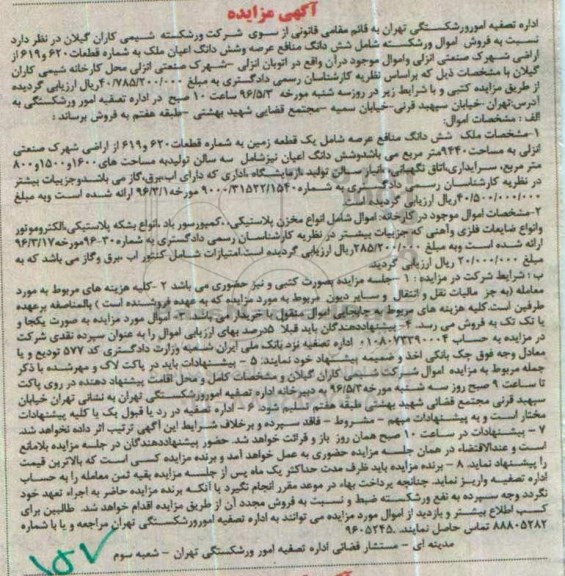 آگهی مزایده
اداره تصفیه امورورشکستگی تهران به قائم مقامی قانونی از سوی شرکت ورشکسته شیمی کاران گیلان در نظر دارد
نسبت به فروش اموال ورشکسته شامل شش دانگ منافع عرصه وشش دانگ اعیان ملک به شماره قطعات۶۲۰ و۶۱۹ از
اراضی شهرک صنعتی انزلی واموال موجود درآن واقع در اتوبان انزلی –شهرک صنعتی انزلی محل کارخانه شیمی کاران
گیلان با مشخصات ذیل که براساس نظریه کارشناسان رسمی دادگستری به مبلغ ۴۰/۷۸۵/۲۰۰/۰۰۰ریال ارزیابی گردیده
از طریق مزایده کتبی و با شرایط زیر در روزسه شنبه مورخه ۹۶/۵/۳ ساعت ۱۰ صبح در اداره تصفیه امور ورشکستگی به
آدرس:تهران -خیابان سپهبد قرنی-خیابان سمیه -مجتمع قضایی شهید بهشتی -طبقه هفتم به فروش برساند :
الف : مشخصات اموال:
۱-مشخصات ملک شش دانگ منافع عرصه شامل یک قطعه زمین به شماره قطعات۶۲۰ و۶۱۹ از اراضی شهرک صنعتی
انزلی به مساحت ۹۴۴۰متر مربع می باشدوشش دانگ اعیان نیزشامل سه سالن تولیدبه مساحت های۱۶۰۰و۱۵۰۰و۸۰۰
متر مربع، سرایداری،اتاق نگهبانی، انبار سالن تولید ،آزمایشگاه ،اداری که دارای اب،برق،گاز می باشدوجزییات بیشتر
در نظریه کارشناسان رسمی دادگستری به شماره۹۰۰۰/۳۱۵۲۲/۱۵۴۰ مورخه۹۶/۳/۱ ارائه شده است وبه مبلغ
۴۰/۵۰۰/۰۰۰/۰۰۰ریال ارزیابی گردیده است
۲-مشخصات اموال موجود در کارخانه: اموال شامل انواع مخزن پلاستیکی،کمپورسور باد ،انواع بشکه پلاستیکی،الکتروموتور
وانواع ضایعات فلزی وآهنی که جزییات بیشتر در نظریه کارشناسان رسمی دادگستری به شماره۳۰-۹۶مورخه۹۶/۳/۱۷
ارائه شده است وبه مبلغ ۲۸۵/۲۰۰/۰۰۰ریال ارزیابی گردیده است.امتیازات شامل کنتور اب ،برق وگاز می باشد که به
مبلغ ۲۰/۰۰۰/۰۰۰ ریال ارزیابی گردید
ب : شرایط شرکت در مزایده : ۱ -جلسه مزایده بصورت کتبی و نیز حضوری می باشد ۲ -کلیه هزینه های مربوط به مورد
معامله (به جز مالیات نقل و انتقال و سایر دیون مربوط به مورد مزایده که به عهده فروشنده است ) بالمناصفه برعهده
طرفین است.کلیه هزینه های مربوط به جابجایی اموال منقول با خریدار می باشد.۳- اموال مورد مزایده به صورت یکجا و
یا تک تک به فروش می رسد. ۴-پیشنهاددهندگان باید قبلا ۵درصد بهای ارزیابی اموال را به عنوان سپرده نقدی شرکت
در مزایده به حساب ۰۱۰۸۰۷۳۳۹۰۰۰۴ اداره تصفیه نزد بانک ملی ایران شعبه وزارت دادگستری کد ۵۷۷ تودیع و یا
معادل وجه فوق چک بانکی اخذ و ضمیمه پیشنهاد خود نمایند. ۵ – پیشنهادات باید در پاکت لاک و مهرشده با ذکر
جمله مربوط به مزایده اموال شرکت شیمی کاران گیلان و مشخصات کامل و محل اقامت پیشنهاد دهنده در روی پاکت
تا ساعت ۹ صبح روز سه شنبه مورخه۹۶/۵/۳ به دبیرخانه اداره تصفیه امورورشکستگی تهران به نشانی تهران خیابان
سپهبد قرنی مجتمع قضائی شهید بهشتی طبقه هفتم تسلیم شود. ۶ – اداره تصفیه در رد یا قبول یک یا کلیه پیشنهادات
مختار است و به پیشنهادات مبهم – مشروط – فاقد سپرده و برخلاف شرایط این آگهی ترتیب اثر داده نخواهد شد.
۷ – پیشنهادات در ساعت ۱۰ صبح همان روز باز و قرائت خواهد شد. حضور پیشنهاددهندگان در جلسه مزایده بلامانع
است و عنداالاقتضاء در همان جلسه مزایده حضوری به عمل خواهد آمد و برنده مزایده کسی است که بالاترین قیمت
را پیشنهاد نماید. ۸ – برنده مزایده باید ظرف مدت حداکثر یک ماه پس از جلسه مزایده بقیه ثمن معامله را به حساب
اداره تصفیه واریـز نماید. چنانچه پرداخت بهاء در موعد مقرر انجام نگیرد یا آنکـه برنده مزایده حاضر به اجراء تعهد خود
نگردد وجه سپرده به نفع ورشکسته ضبط و نسبت به فروش مجدد آن از طریق مزایده اقدام خواهد شد. طالبین برای
کسب اطلاع بیشتر و بازدید از اموال مورد مزایده می توانند به اداره تصفیه امورورشکستگی تهران مراجعه و یا با شماره
۸۸۸۰۵۲۸۲ تماس حاصل نمایند. ۹۶۰۵۲۴۵
مدینه ای – مستشار قضائی اداره تصفیه امور ورشکستگی تهران – شعبه سوم